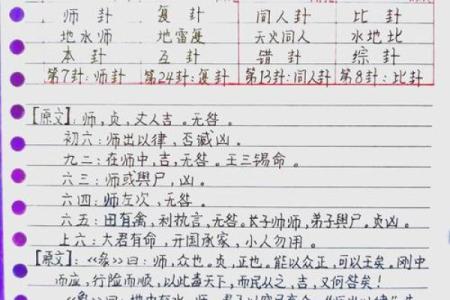 师卦 复卦 同人卦 比卦
地水师 地雷复 天火同人 水地比
本卦 互卦 错卦 综卦
第7卦:师卦 第24卦:复卦 第13卦:同人卦 第8卦:比卦
【原文】:师,贞,丈人吉。无咎。
初六:师出以律,否臧凶。
九二:在师中,吉,无咎。王三锡命。
六三:师或舆尸,凶。
六四:师左次,无咎。
六五:田有禽,利执言,无咎。长子帅师,弟子舆尸,贞凶。
上六:大君有命,开国承家,小人勿用。
【原文】:《彖》曰:师,众也,贞,正也,能以众正,可以王矣,刚中
而应,行险而顺,以此毒天下,而民以之,吉,又何咎矣!